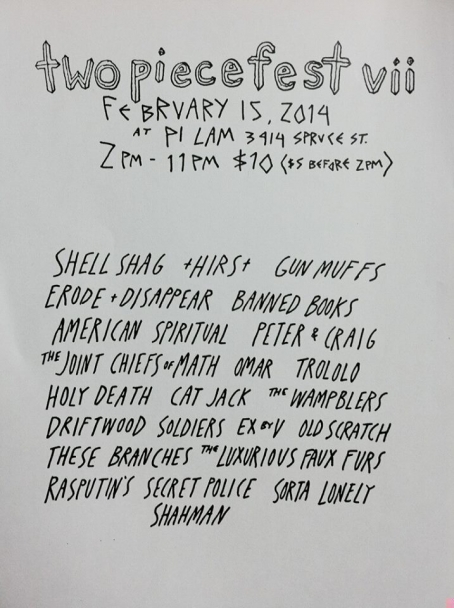 two piece fest vii
FEBRVARY 15, 2014
AT PI LAM 3914 SPRVCE ST.
2 PM - 11 PM $10 ($5 BEFORE 2PM)
SHELL SHAG +HIRS+ GUN MUFFS
ERODE + DISAPPEAR BANNED BOOKS
AMERICAN SPIRITUAL PETER & CRAIG
THE JOINT CHIEFS OF MATH OMAR TROLOLO
HOLY DEATH CAT JACK THE WAMPBLERS
DRIFTWOOD SOLDIERS EX BY V OLD SCRATCH
THESE BRANCHES THE LUXURIOUS FAUX FURS
RASPUTIN'S SECRET POLICE SORTA LONELY
SHAHMAN